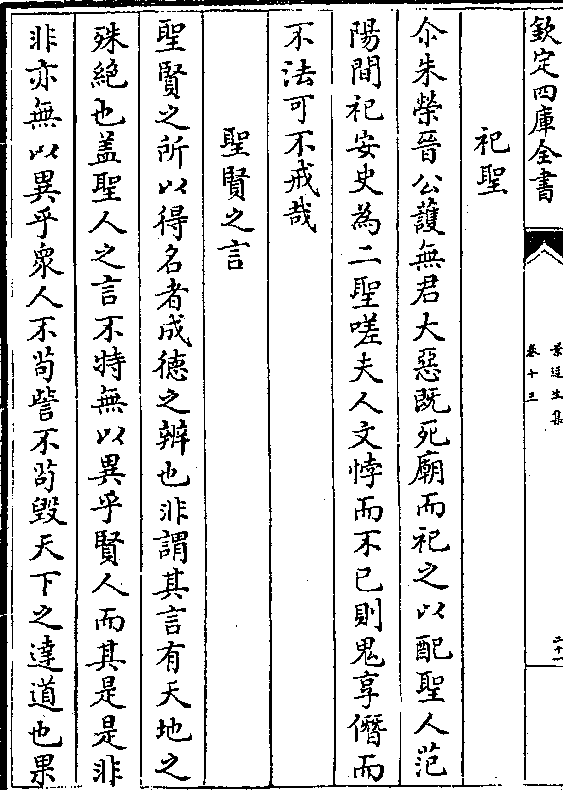 欽定四庫全書
景迂生集
卷十三
二十一
祀聖
尒朱榮晉公護無君大惡既死廟而祀之以配聖人范
陽間祀安史為二聖嗟夫人文悖而不已則鬼享僭而
不法可不戒哉
聖賢之言
聖賢之所以得名者成德之辨也非謂其言有天地之
殊絶也盖聖人之言不特無以異乎賢人而其是是非
非亦無以異乎衆人不苟訾不茍毁天下之達道也果